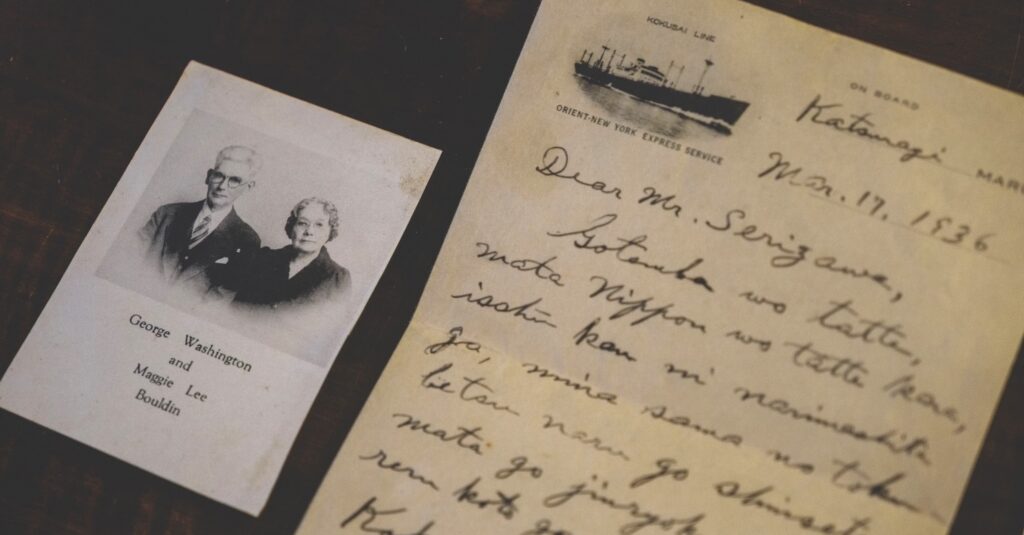 George Washington
and
Maggie Lee
Bouldin
KOKUSAI LINE
ORIENT-NEW YORK EXPRESS SERVICE
ON BOARD
Katsuragi MARU
Mar. 17, 1936
Dear Mr. Serizawa,
Gotemba wo tatte,
mata Nippon wo tatte kara,
isshū kan ni narimashita
ga, mina sama no
naru go
mata go
koto